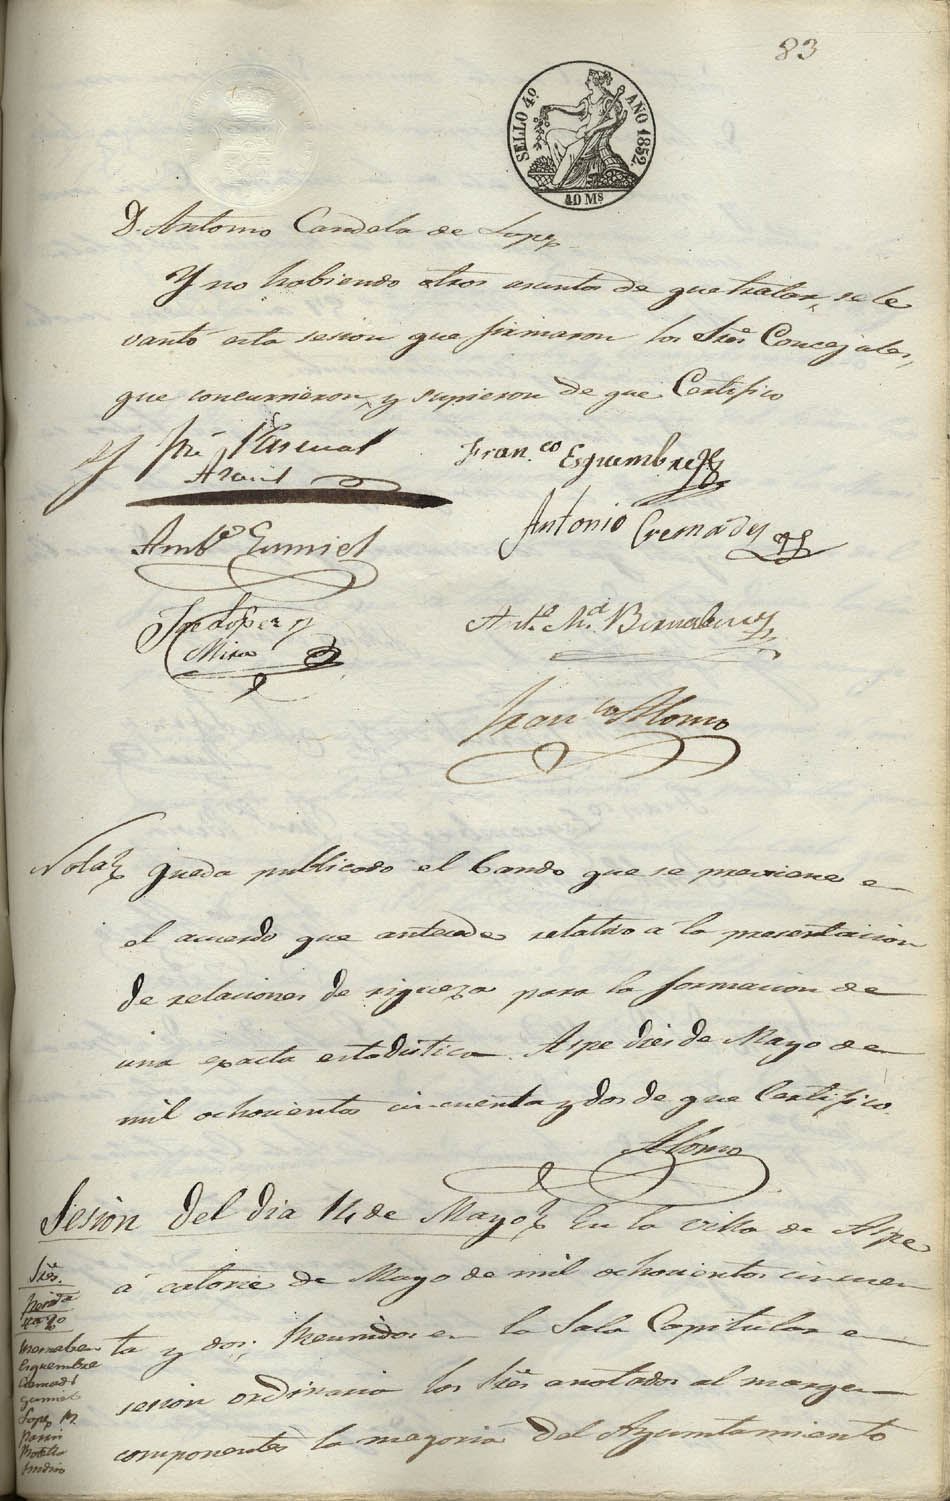 83
SELLO 4º AÑO 1852.
40 Ms
D. Antonio Candela de Lopez
Y no habiendo otros asuntos de que tratar, se le
vantó esta sesion que firmaron los Sres Concejales,
que concurrieron, y supieron de que Certifico
Jsé Pascual
Franco Esquembre
Antonio Cremades
Ambº Gumiel
Lopez y
Mira
Antº Mª Bernabeu
Franco Alonso
Nota queda publicado el bando que se previene en
el acuerdo que antecede relativo á la presentacion
de relaciones de riqueza para la formacion de
una exacta estadistica. Aspe diez de Mayo de
mil ochocientos cincuenta y dos de que Certifico.
Alonso
Sesion del dia 14 de Mayo En la villa de Aspe
á catorce de Mayo de mil ochocientos cincuen
ta y dos; Reunidos en la Sala Capitular en
sesion ordinaria los Sres anotados al margen
componentes la mayoria del Ayuntamiento
Sres.
Bernabeu
Esquembre
Cremads
Gumiel
Lopez M.
Botella